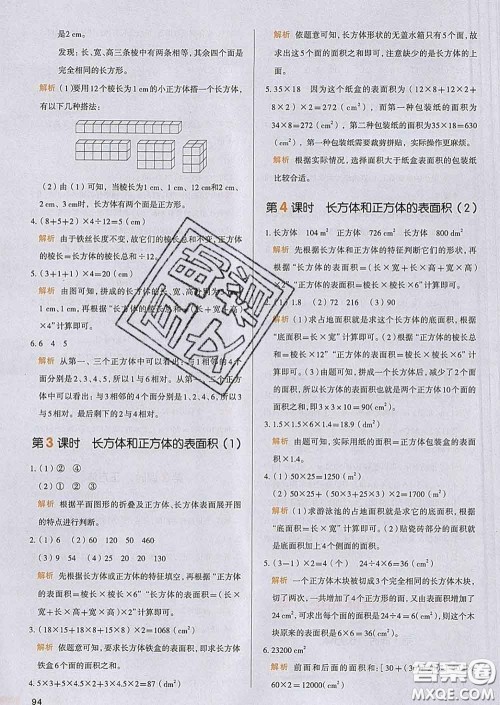 是2cm。
发现:长、宽、高三条棱中有两条相等,其余四个面是
完全相同的长方形。
解析 (1)要用12个棱长为1cm的小正方体搭一个长方体,
有以下几种搭法:
(2)由(1)可知,当棱长为1cm、1cm、12cm和2cm、
2cm、3cm时,长方体有两个面是正方形。
4.(8+5+2)×4÷12=5(cm)
解析 由于铁丝长度不变,故它们的棱长总和不变,正方体
的棱长=棱长总和÷12。
5.(3+1+1)×4=20(cm)
”计算即可。
6.6 4 5
解析 从第一、三个正方体中可以看出,与1相邻的4个
面分别是2、3、4、5,所以1与6相对。从第一、二个正
方体中可以看出,与3相邻的4个面分别是1、2、4、6,所以3
与5相对。最后剩下的2与4相对。
第3课时 长方体和正方体的表面积(1)
1.(1)② ④
(2)① ② ③
解析 根据平面图形的折叠及正方体、长方体表面展开图
的特点进行判断。
2.(1)9 54 (2)20 15 12 94 (3)600 150
解析 先根据长方体或正方体的特征填空,再根据“正方体
的表面积=棱长×棱长×6”“长方体的表面积=(长×
宽+长×高+宽×高)×2”计算即可。
3.(18×15+18×8+15×8)×2=1068(cm²)
解析 依题意可知,要求长方体铁盒的表面积,即求长方体
铁盒6个面的面积之和。
4.5×3×5+4.5×2+3×4.5×2=87(dm²)
94
解析 依题意可知,长方体形状的无盖水箱只有5个面,故
求出这5个面的面积之和即可,注意缺少的是长方体的上
面。
5.35×18 因为这个纸盒的表面积为(12×8+12×2+
8×2)×2=272(cm²),而第一种包装纸的面积为
34×8=272(cm²),第二种包装纸的面积为35×18=630
(cm²),第一种包装纸需要裁剪拼贴,实际操作更麻烦。
解析 根据实际情况,选择面积大于纸盒表面积的包装纸
比较合适。
第4课时 长方体和正方体的表面积(2)
1.长方体 104m² 正方体 726cm² 长方体 800dm²
解析 先根据长方体和正方体的特征判断它们的形状,再
根据“长方体的表面积=(长×宽+长×高+宽×高)×
2”“正方体的表面积=棱长×棱长×6”计算即可。
2.(1)1.8 (2)216 (3)90
解析 (1)求占地面积就是求这个长方体的底面积,根据
“底面积=长×宽”计算即可。(2)根据“正方体的表面
积=棱长×棱长×6”计算即可。(3)根据题意可知,
个正方体拼成一个长方体后,减少了2个面
的面积,即剩下的表面积为两个正方体10个面的
面积之和,即3×3×10=90(cm²)。
解析 由题可知,实际用纸的面积=正方体包装盒的表面
积×1.5。
4.(1)50×25=1250(m²)
(2)50×25+(50×2.5+25×2.5)×2=1625(m²)
解析 (1)求游泳池的占地面积就是求它的底面积,根据
“底面积=长×宽”计算即可。(2)贴瓷砖部分的面积就
是求这个长方体5个面的面积之和。
5.(3-1)×2=4(个) 24÷4×6=36(cm²)
解析 一个正方体木块被切成3个完全相同的长方体木块,
切了两次,一共增加了4个正方形的面,又已知面积增加
了24cm²,所以每个面的面积是24÷4=6(cm²),这个
木块原来的表面积是6×6=36(cm²)。
6.23200cm²
60×2=12000(cm²)
答案圈
MXQE.COM